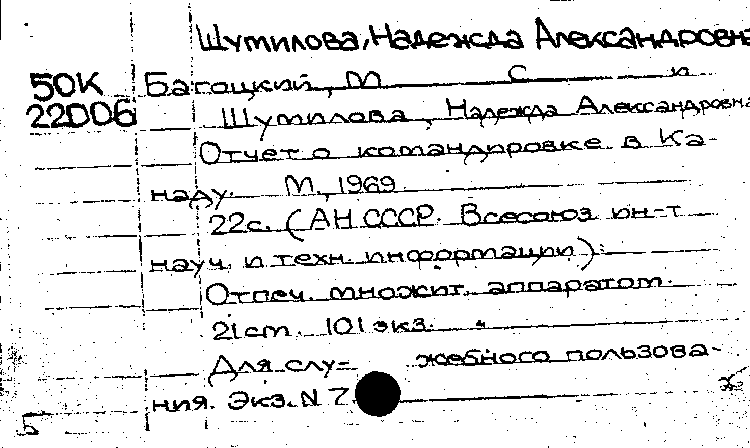 Шутилова, Надежда Александровна
50К Багоцкий, М С и
22006 Шутилова, Надежда Александровна
Отчет о командировке в Ка-
наду. М., 1969
22с. (АН СССР. Всесоюз ин-т
науч. и техн. информации).
Отпеч. множит. аппаратом.
21 ст. 101 экз.
Для слу- жебного пользова-
ния. Экз. N 7.
5